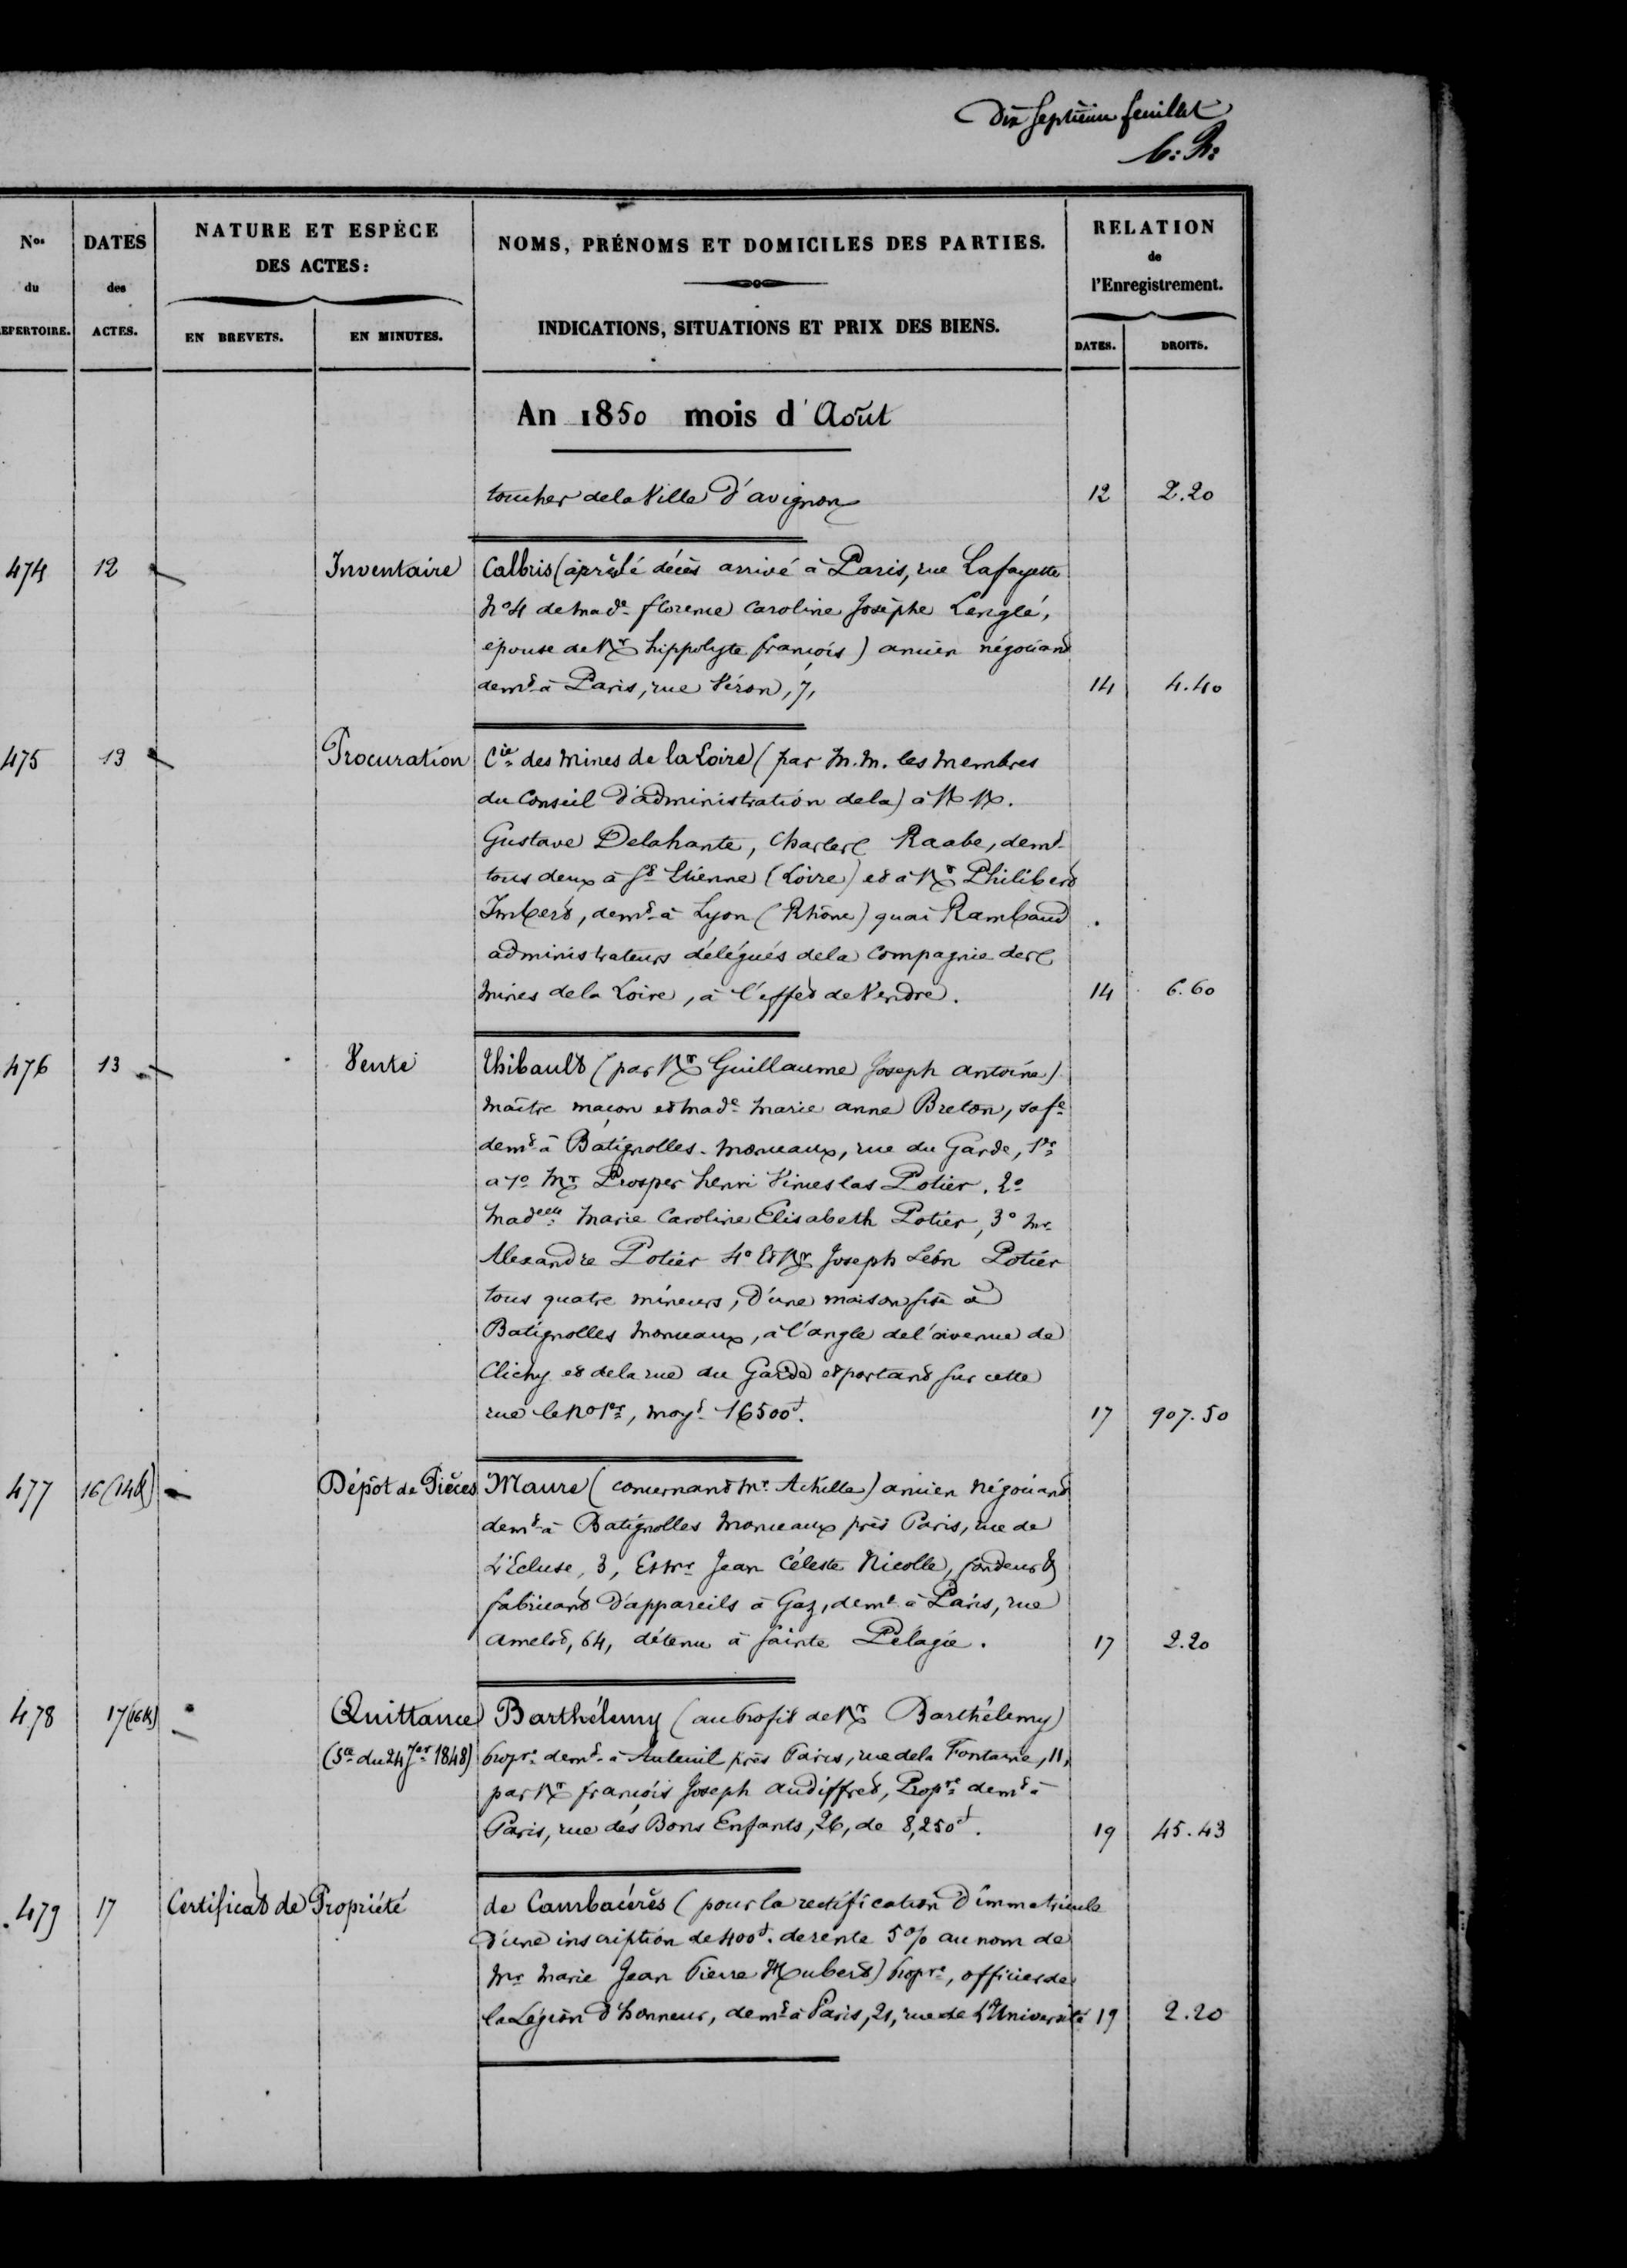 Dix septième feuillet
C: R:
Nos du REPERTOIRE.
DATES des ACTES.
NATURE ET ESPÈCE DES ACTES:
EN BREVETS.
EN MINUTES.
NOMS, PRÉNOMS ET DOMICILES DES PARTIES.
INDICATIONS, SITUATIONS ET PRIX DES BIENS.
RELATION
de
l'Enregistrement.
DATES.
DROITS.
An 1850 mois d'Août
toucher de la Ville d'avignon 12 2.20
474 12 Inventaire Calbris (après le décès arrivé à Paris, rue Lafayette
No 4 de Made florence Caroline Josèphe Lenglé,
épouse de Mr hippolyte françois) ancien négociant
demt à Paris, rue Véron, 7, 14 4.40
475 13 Procuration Cie des Mines de la Loire (par M.M. les Membres
du Conseil d'administration de la) à MM.
Gustave Delahante, Charles Raabe, demt
tous deux à St Etienne (Loire) et à Mr Philibert
Imbert, demt à Lyon (Rhône) quai Rambaud
administrateurs délégués de la Compagnie des
Mines de la Loire, à l'effet de Vendre. 14 6.60
476 13 Vente Thibault (par Mr Guillaume Joseph antoine)
Maître maçon et Made Marie anne Breton, sa fe
demt à Batignolles-Monceaux, rue du Garde, 1er
a 1o Mr Prosper henri Vinceslas Potier. 2o
Madelle Marie Caroline Elisabeth Potier, 3o Mr
Alexandre Potier 4o Et Mr Joseph Léon Potier
tous quatre mineurs, d'une maison sise à
Batignolles Monceaux, à l'angle de l'avenue de
Clichy et de la rue du Garde et portant sur cette
rue le No 1er, moyt 16500f. 17 907.50
477 16 (14&) Dépôt de Pièces Maure (concernant Mr Achille) ancien Négociant
demt à Batignolles Monceaux près Paris, rue de
L'Ecluse, 3, Et Mr Jean Céleste Nicolle, fondeur &
fabricant d'appareils à Gaz, demt à Paris, rue
amelot, 64, détenu à Sainte Pélagie. 17 2.20
478 17 (16&) Quittance Barthélemy (au profit de Mr Barthélemy)
(Ste du 24 7er 1848) propre demt à Auteuil près Paris, rue de la Fontaine, 11,
par Mr françois Joseph audiffred, Propre demt à
Paris, rue des Bons Enfants, 26, de 8,250f. 19 45.43
479 17 Certificat de Propriété de Cambacérès (pour la rectification d'immatricule
d'une inscription de 400f. de rente 5% au nom de
Mr Marie Jean Pierre Hubert) propre, officier de
la Légion d'honneur, demt à Paris, 21, rue de L'Université 19 2.20